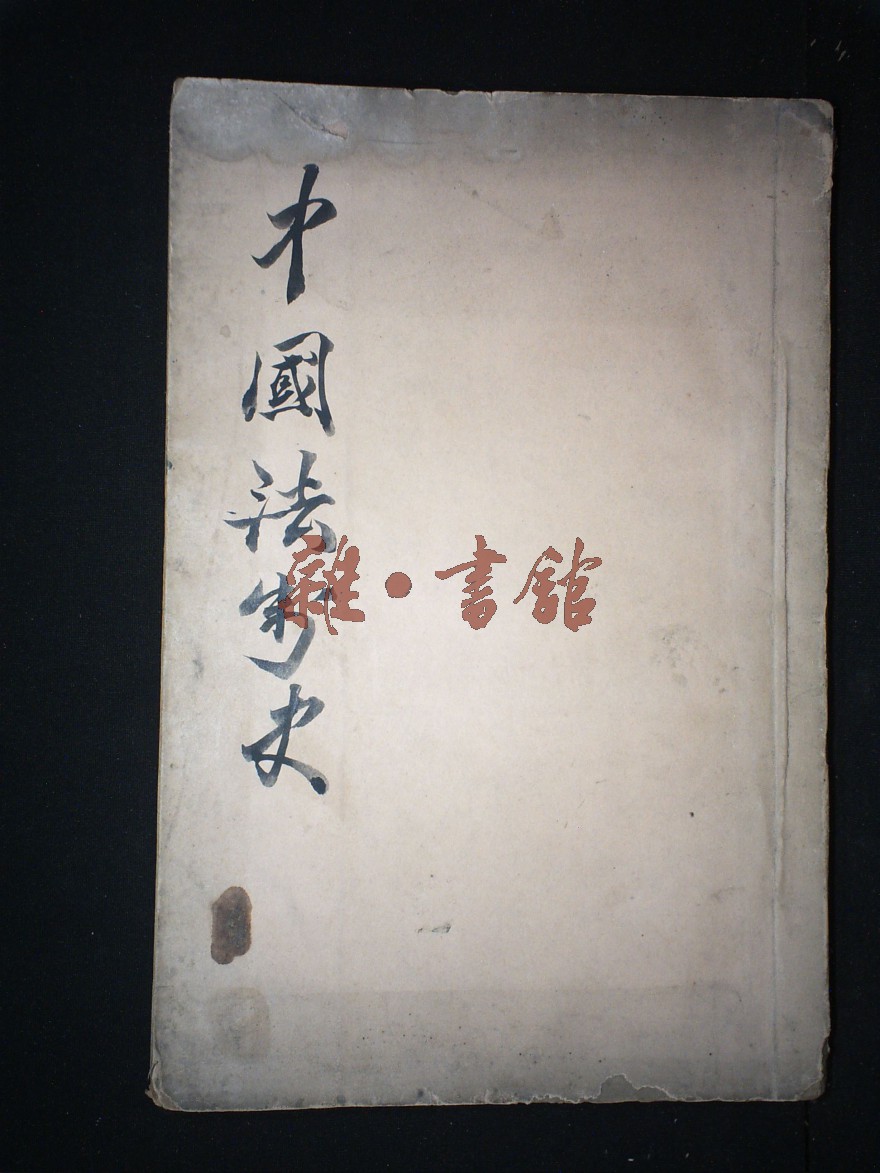 中國法制史
雜·書館